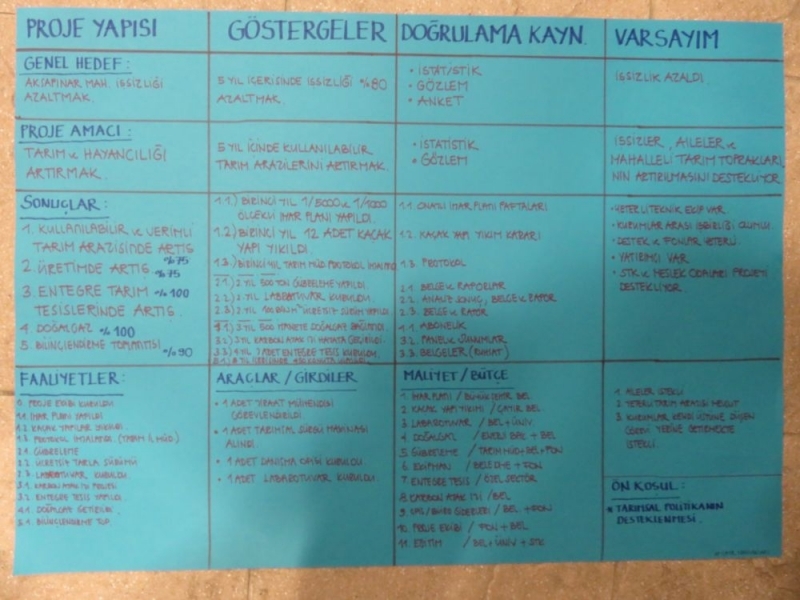 PROJE YAPISI
GÖSTERGELER
DOĞRULAMA KAYN.
VARSAYIM
GENEL HEDEF:
AKÇAPINAR MAH. İŞSİZLİĞİ
AZALTMAK.
5 YIL İÇERİSİNDE İSSİZLİĞİ %80
AZALTMAK.
• İSTATİSTİK
• GÖZLEM
• ANKET
İSSİZLİK AZALDI.
PROJE AMACI:
TARIM ve HAYVANCILIĞI
ARTIRMAK.
5 YIL İCİNDE KULLANILABİLİR
TARIM ARAZİLERİNİ ARTIRMAK.
• İSTATİSTİK
• GÖZLEM
İSSİZLER, AİLELER ve
MAHALLELİ TARIM TOPRAKLARI
NIN ARTIRILMASINI DESTEKLİYOR
SONUÇLAR:
1. KULLANILABİLİR ve VERİMLİ
TARIM ARAZİSİNDE ARTIŞ
%75
2. ÜRETİMDE ARTIŞ
%75
3. ENTEGRE TARIM %100
TESİSLERİNDE ARTIŞ.
4. DOĞALGAZ %100
5. BİLİNÇLENDİRME TOPLANTISI
%90
1.1) BİRİNCİ YIL 1/5000 ve 1/1000
ÖLCEKLİ İMAR PLANI YAPILDI.
1.2) BİRİNCİ YIL 12 ADET KAÇAK
YAPI YIKILDI.
1.3) BİRİNCİ YIL TARIM MÜD. PROTOKOL
2.1) 2 YIL 500 TON GÜBRELEME YAPILDI.
2.2) 2 YIL LABORATUVAR KURULDU.
2.3) 2 YIL ÜCRETSİZ SÜRÜM YAPILDI.
3.1) 3 YIL 500 HANEYE DOĞALGAZ BAĞLANDI.
3.2) 3 YIL KARBON AYAK İZİ HAYATA GEÇİRİLDİ.
3.3) 4 YIL ADET ENTEGRE TESİS KURULDU.
1.1. ONAYLI İMAR PLANI PAFTALARI
1.2. KAÇAK YAPI YIKIM KARARI
1.3. PROTOKOL
2.1. BELGE ve RAPORLAR
2.2. ANALİZ SONUÇ, BELGE ve RAPOR
2.3. BELGE ve RAPOR
3.1. ABONELİK
3.2. PANELLER, SUNUMLAR
3.3. BELGELER (RUHSAT)
• YETERLİ TEKNİK EKİP VAR.
• KURUMLAR ARASI İŞBİRLİĞİ OLUMLU
• DESTEK ve FONLAR YETERLİ.
• YATIRIMCI VAR
• STK ve MESLEK ODALARI PROJEYİ
DESTEKLİYOR.
FAALİYETLER:
0. PROJE EKİBİ KURULDU
1.1. İMAR PLANI YAPILDI
1.2. KAÇAK YAPILAR YIKILDI.
1.3. PROTOKOL İMZALANDI (TARIM İL MÜD.)
2.1. GÜBRELEME
2.2. ÜCRETSİZ TARLA SÜRÜMÜ
2.3. LABORATUVAR KURULDU.
3.1. KARBON AYAK İZİ PROJESİ
3.2. ENTEGRE TESİS YAPILDI.
4.1. DOĞALGAZ GETİRİLDİ.
5.1. BİLİNÇLENDİRME TOP.
ARAÇLAR / GİRDİLER
• 1 ADET ZİRAAT MÜHENDİSİ
GÖREVLENDİRİLDİ
• 1 ADET TARIMSAL SÜRGÜ MAKİNASI
ALINDI.
• 1 ADET DANIŞMA OFİSİ KURULDU.
• 1 ADET LABORATUVAR KURULDU.
MALİYET / BÜTÇE
1. İMAR PLANI / BÜYÜKŞEHİR BEL.
2. KAÇAK YAPI YIKIMI / ÇAYIR. BEL.
3. LABORATUVAR / BEL + ÜNİV
4. DOĞALGAZ / ENERJİ BAK + BEL
5. GÜBRELEME / TARIM MÜD + BEL + FON
6. EKİPMAN / BELEDİYE + FON
7. ENTEGRE TESİS / ÖZEL SEKTÖR
8. KARBON AYAK İZİ / BEL
9. OFİS/BÜRO GİDERLERİ / BEL + FON
10. PROJE EKİBİ / FON + BEL
11. EĞİTİM / BEL + ÜNİV + STK
1. AİLELER İSTEKLİ
2. YETERLİ TARIM ARAZİSİ MEVCUT
3. KURUMLAR KENDİ ÜSTÜNE DÜŞEN
GÖREVİ YERİNE GETİRMEKTE
İSTEKLİ.
ÖN KOŞUL:
• TARIMSAL POLİTİKANIN
DESTEKLENMESİ.